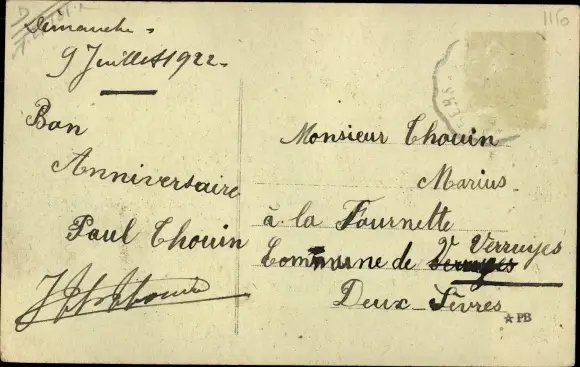 Dimanche.
9 Juillet 1922.
Bon
Anniversaire
Paul Thouin
1150
Monsieur Thouin
Marius
à la Fournette
Commune de V. Verruyes
Deux-Sèvres
★PB